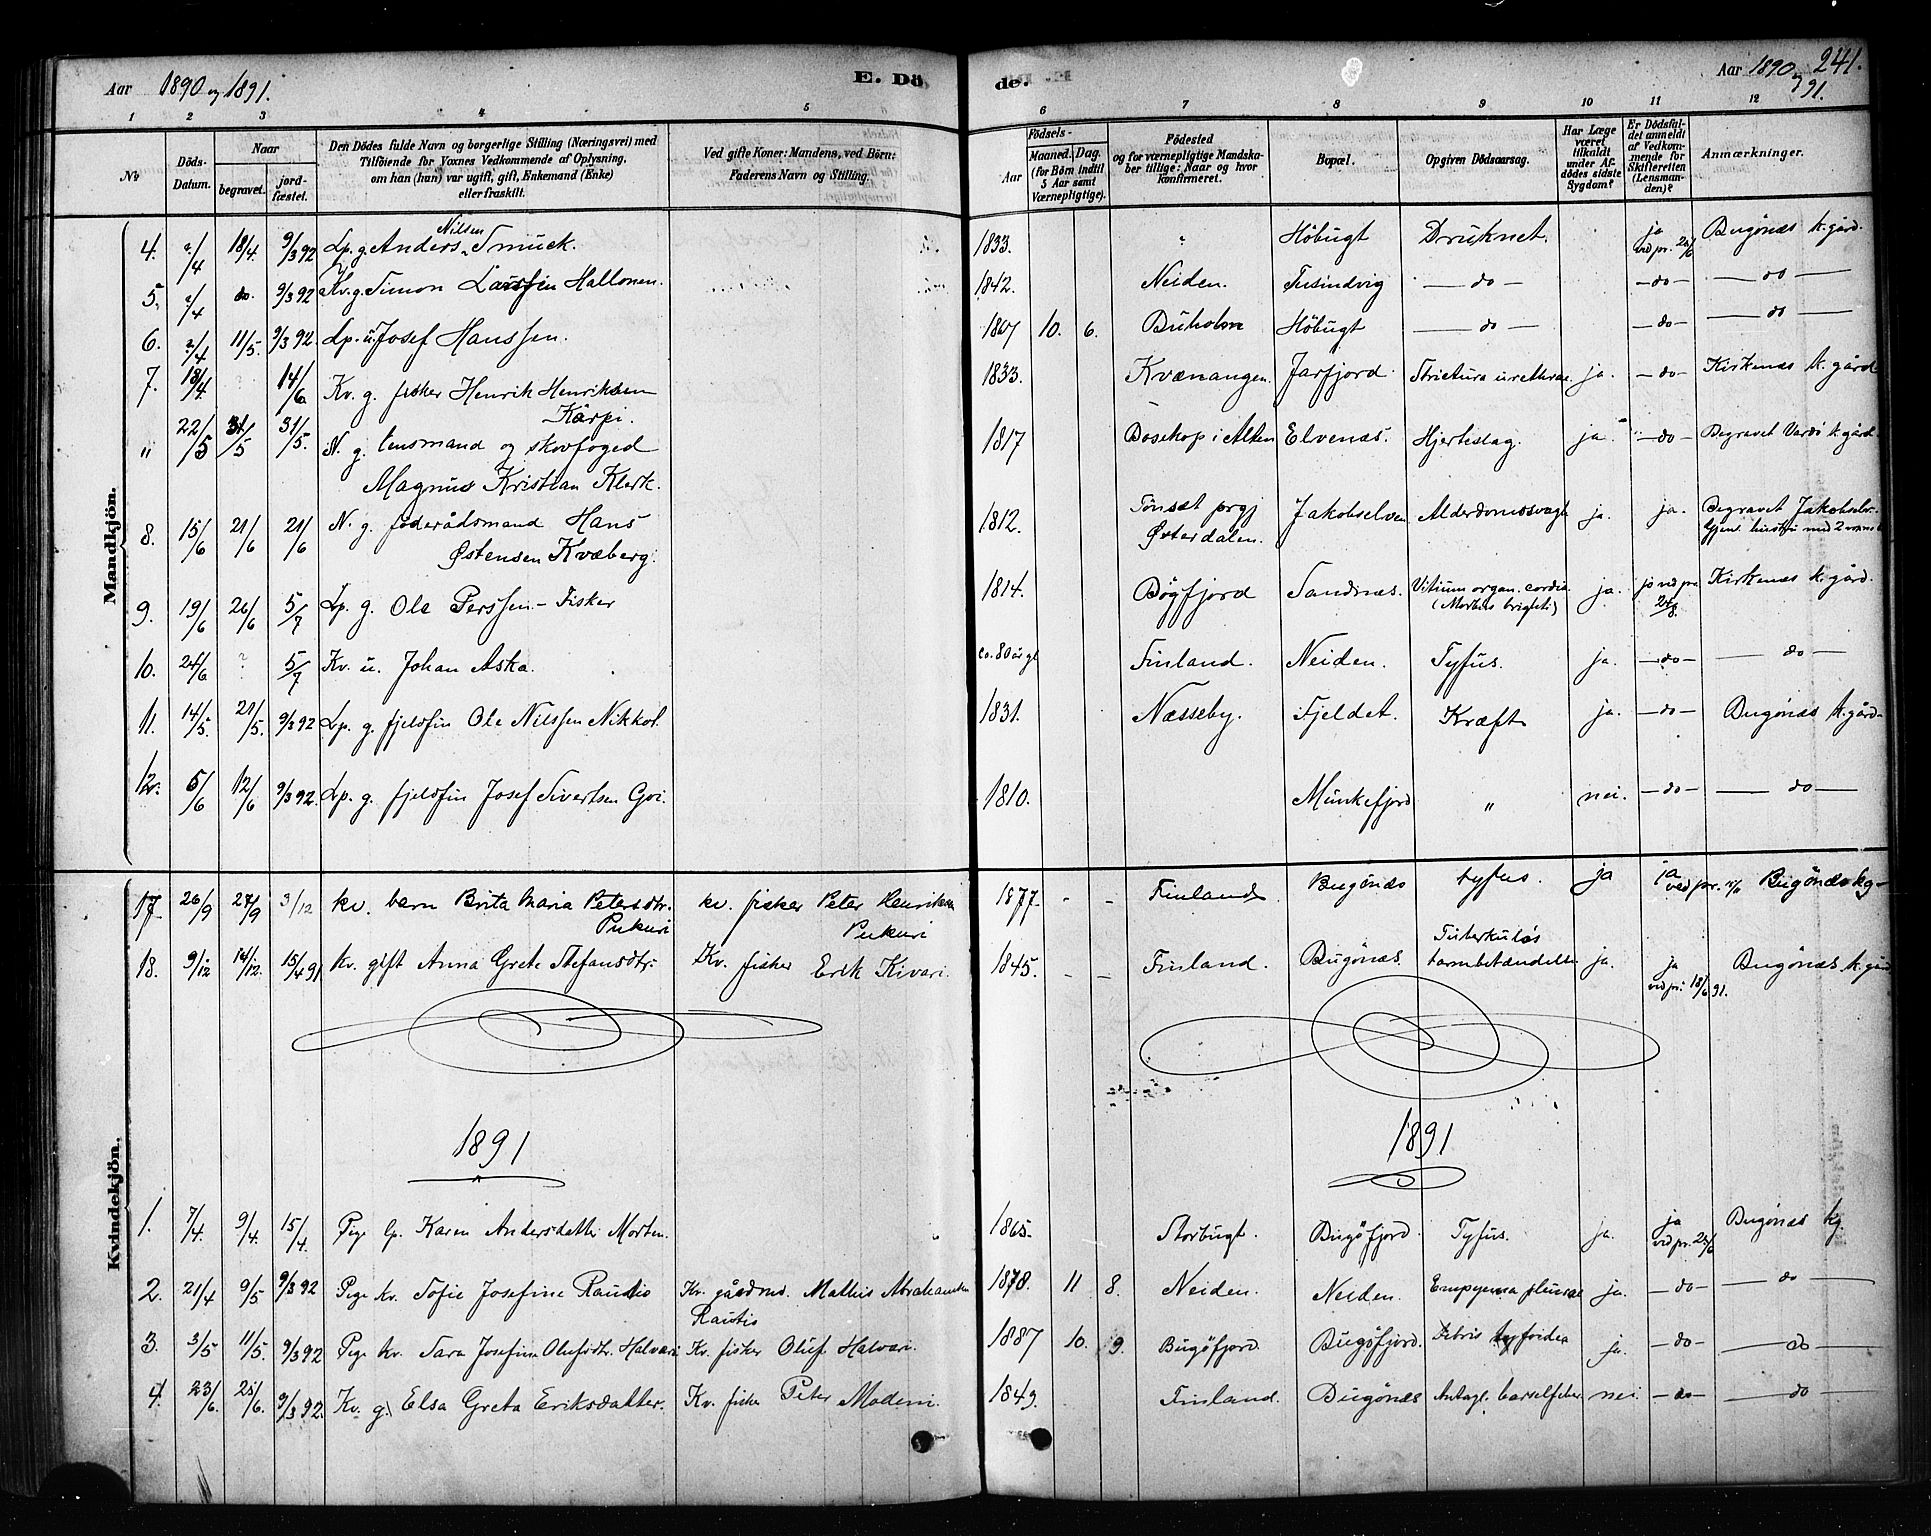 Aar 1890 og 1891.
E. Dö
de.
Aar 1890 og 91.
241.
1 2 3 4 5
6 7 8 9 10 11 12
No
Döds-Datum.
Naar
begravet.
jord-fæstet.
Den Dödes fulde Navn og borgerlige Stilling (Næringsvei) med
Tilföiende for Voxnes Vedkommende af Oplysning,
om han (hun) var ugift, gift, Enkemand (Enke)
eller fraskilt.
Ved gifte Koner: Mandens, ved Börn:
Faderens Navn og Stilling.
Födsels-
Aar
Maaned. Dag.
(for Börn indtil
5 Aar samt
Værnepligtige).
Födested
og for værnepligtige Mandska-
ber tillige: Naar og hvor
konfirmeret.
Bopæl.
Opgiven Dödsaarsag.
Har Læge
været
tilkaldt
under Af-
dödes sidste
Sygdom?
Er Dödsfal-
det anmeldt
af Vedkom-
mende for
Skifteretten
(Lensman-
den)?
Anmærkninger.
Mandkjön.
4. 2/4 18/4. 9/3 92 Lp. g. Anders Nilsen Smuck. 1833. " Höbugt Druknet. ja vid pr. 24/6 Bugönæs k.gård.
5. 2/4 do. 9/3 92 Kv. g. Simon Larssen Hallonen. 1842. Neiden. Tusindvig — do — — do — — do —
6. 2/4 11/5. 9/3 92. Lp. u. Josef Hanssen. 1867 10. 6. Buholm Höbugt — do — — do — — do —
7. 18/4 ? 14/6 Kv. g. fisker Henrik Henriksen
Kärpi. 1833. Kvænangen. Jarfjord. Strictura urethrae ja. — do — Kirkenæs k. gård
" 22/5 31/5 31/5. N. g. lensmand og skovfoged
Magnus Kristian Klerk. 1817 Bosekop i Alten Elvenæs. Hjerteslag. ja. — do — Begravet Vardö k.gård.
8. 15/6 21/6 21/6 N. g. föderådsmand Hans
Østensen Kvæberg. 1812. Tönset prgj
Østerdalen. Jakobselven Alderdomssvagh. ja. ja. Begravet Jakobselv.
9. 19/6 26/6 5/7 Lp. g. Ole Perssen - Fisker 1814. Bögfjord Sandnæs. Vitium organ. cordis
(Morbus brighti) ja. ja vid pr. 24/8. Kirkenæs k. gård.
10. 24/6 ? 5/7 Kv. u. Johan Aska. ca. 80 år gl. Finland. Neiden. Tyfus. ja. — do — — do —
11. 14/5. 21/5. 9/3 92 Lp. g. fjeldfin Ole Nilssen Nikkol. 1831. Næsseby. Fjeldet. Kræft ja. — do — Bugönæs k. gård-
12. 5/6 12/6 9/3 92. Lp. g. fjeldfin Josef Sivertsen Goi. 1810. Munkefjord " nei. — do — — do —
Kvindekjön.
17 26/9 27/9 3/12 kv. barn Brita Maria Petersdtr.
Pukuri kv. fisker Peter Henriksen
Pukuri 1877 - - Finland. Bugönæs tyfus. ja ja vid pr. Bugönæs kg-
18. 9/12 14/12. 15/4 91 kv. gift Anna Grete Stefansdtr. Kv. fisker Erik Kivari. 1845. - - Finland. Bugönæs. Tuberkulös
tarmbetændelse ja. ja
vid pr. 18/6 91. Bugönæs k. gård
1891
1891
1. 7/4. 9/4. 15/4. Pige lp. Karen Andersdatter Morten. 1865. Storbugt. Bugöfjord. Tyfus. ja. ja
vid pr. 24/6 Bugönæs kg.
2. 21/4 9/5 9/3 92 Pige kv. Sofie Josefine Rautio Kv. gårdmd. Mathis Abrahamsen
Rautio 1878. 11 8. Neiden. Neiden. Empyema pleurae ja. — do — — do —
3. 3/5 11/5. 9/3 92 Pige kv. Sara Josefine Olufsdtr. Halvari Kv. fisker Oluf Halvari. 1887 10. 9. Bugöfjord Bugöfjord. Febris tyfoidea ja. — do — — do —
4. 23/6. 25/6. 9/3 92. Kv. g. Elsa Greta Eriksdatter. Kv. fisker Peter Modeni. 1849. Finland. Bugönæs Antagl. barselfeber nei — do — — do —